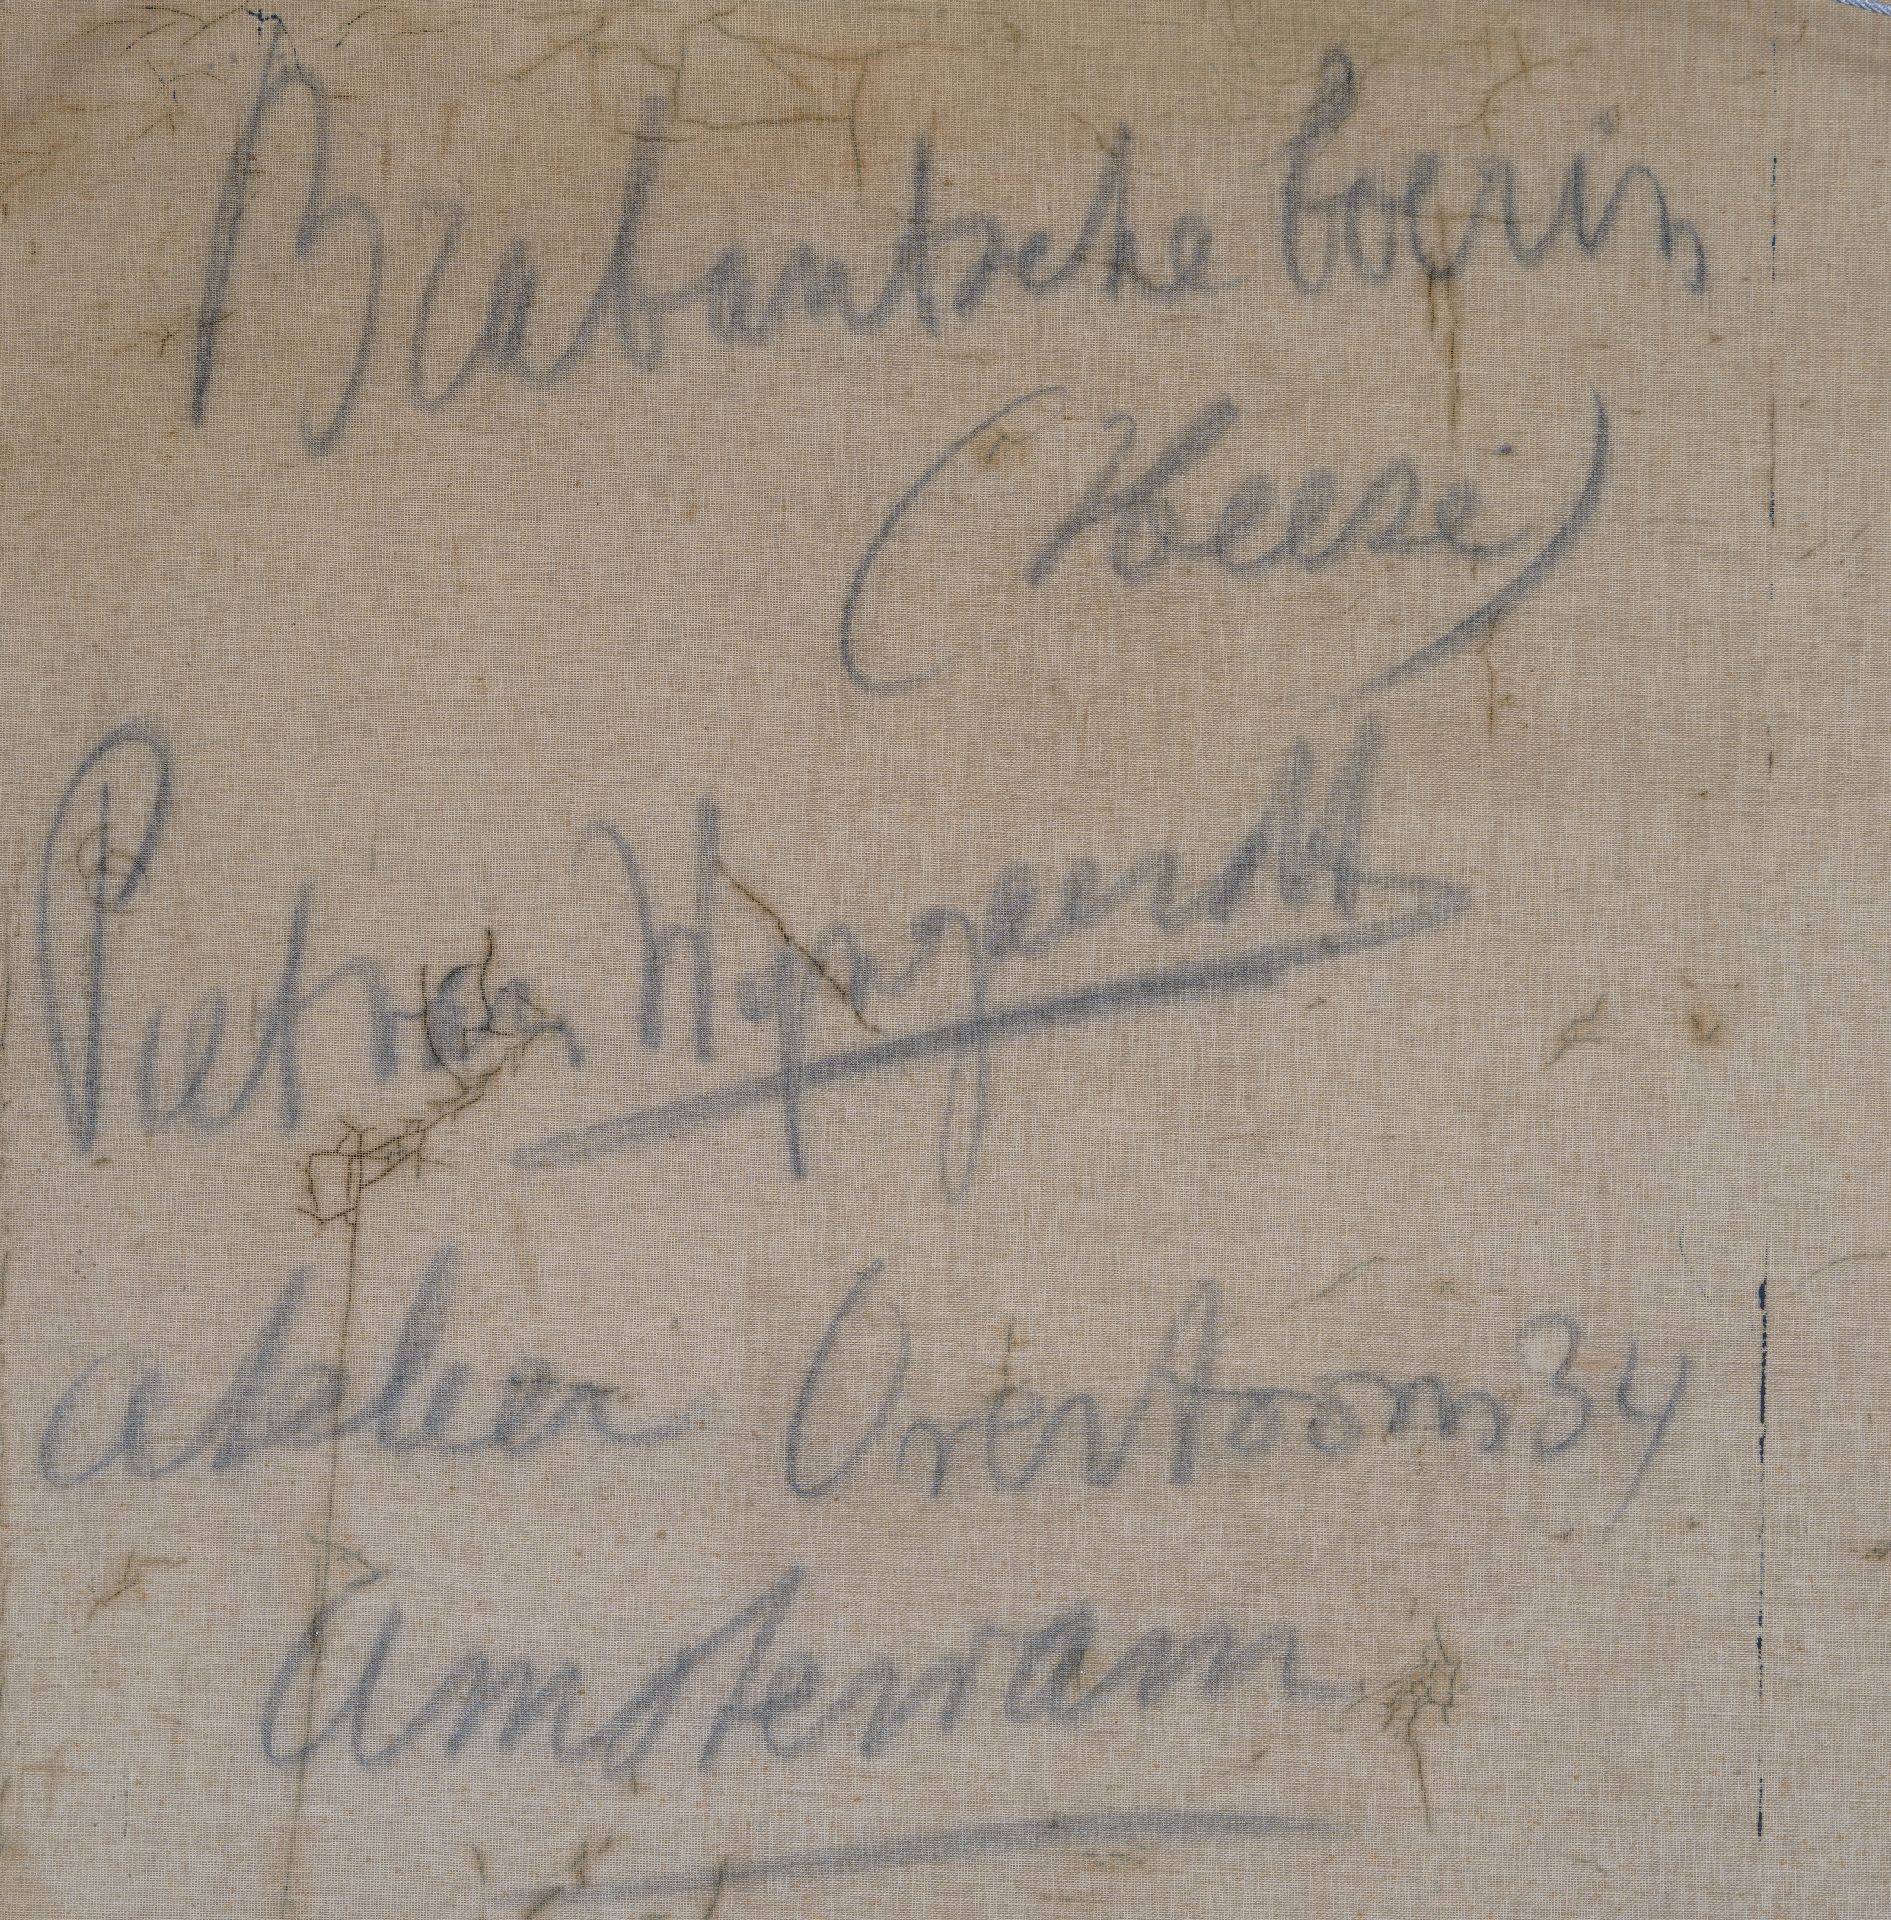 Brabantsche boerin
(Heeze)
Piet van Wijngaerdt
atelier Overtoom 34
Amsterdam